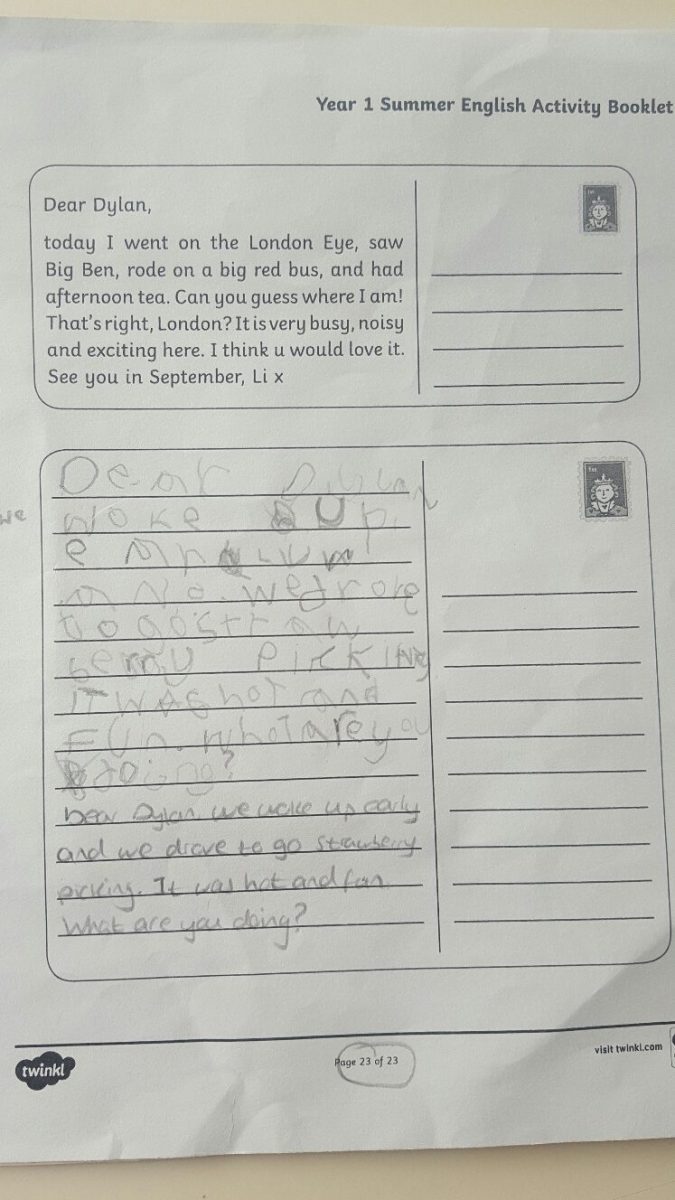 Year 1 Summer English Activity Booklet
Dear Dylan,
today I went on the London Eye, saw
Big Ben, rode on a big red bus, and had
afternoon tea. Can you guess where I am!
That's right, London? It is very busy, noisy
and exciting here. I think u would love it.
See you in September, Li x
1st
Dear Dylan
we woke up
1st
wedrove
to gostraw
berry Picking
IT WAS hot and
Fun. whatareyou
doing?
Dear Dylan we woke up early
and we drove to go strawberry
picking. It was hot and fun.
What are you doing?
twinkl
Page 23 of 23
visit twinkl.com